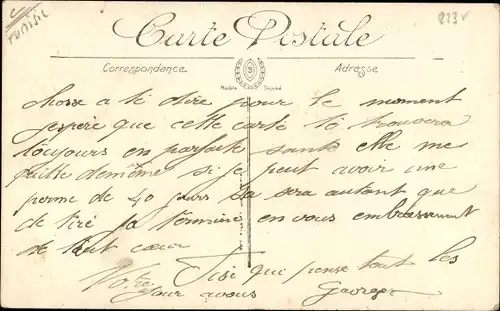 TUNISIE
223v
Carte Postale
Correspondance
Adresse
Modèle Déposé
chosse a té dire pour le moment
j'espère que cette carte té trouvera
toujours en parfaite santé elle me
quitte de même si je peut avoir une
perme de 40 jours sa sera autant que
de tiré je termine en vous embrassement
de tout cœur
Votre qui pense tout les
jour a vous Georges